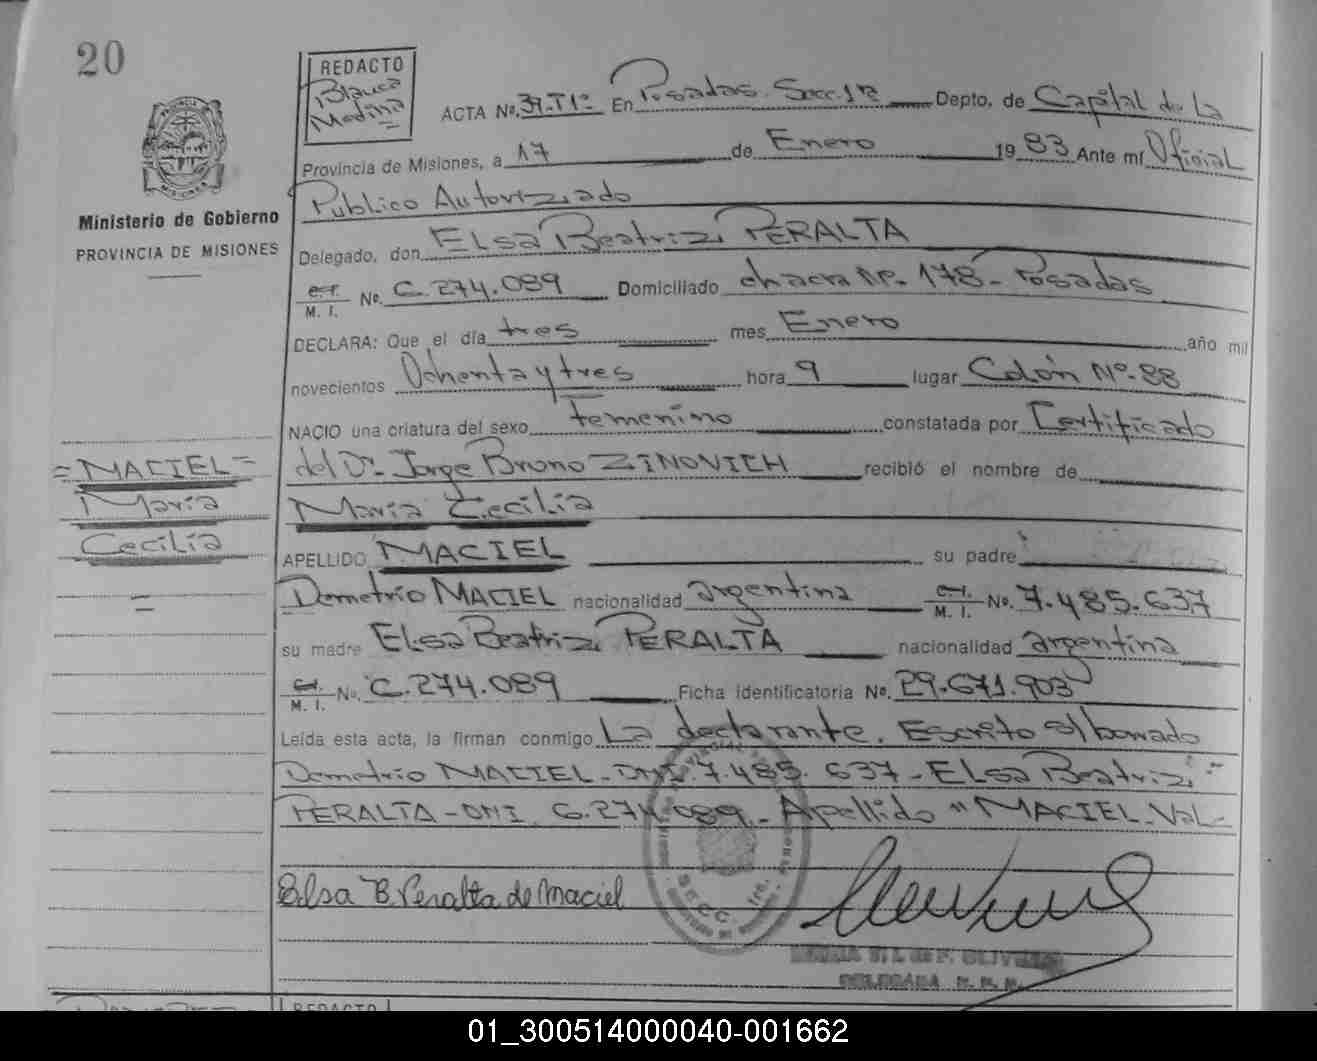 20
REDACTO
Blanca
Medina
ACTA No. 39-T1º En Posadas Secc. 1ª Depto. de Capital de La
Provincia de Misiones, a 17 de Enero 1983 Ante mí Oficial
Publico Autorizado
Delegado, don Elsa Beatriz PERALTA
M. I. No. 6.274.089 Domiciliado chacra Nº. 178 - Posadas
DECLARA: Que el día tres mes Enero año mil
novecientos Ochenta y tres hora 9 lugar Colón Nº. 88
NACIO una criatura del sexo femenino constatada por Certificado
del Dr. Jorge Bruno ZINOVICH recibió el nombre de
María Cecilia
APELLIDO MACIEL su padre
Demetrio MACIEL nacionalidad argentina M. I. No. 7.485.637
su madre Elsa Beatriz PERALTA nacionalidad argentina
M. I. No. 6.274.089 Ficha identificatoria No. 29.671.903
Leída esta acta, la firman conmigo La declarante. Escrito s/borrado
Demetrio MACIEL - DNI. 7.485.637 - Elsa Beatriz
PERALTA - DNI 6.274.089 - Apellido "MACIEL - Vale
Elsa B. Peralta de Maciel
SECC. 1ra.
DELEGADA
Ministerio de Gobierno
PROVINCIA DE MISIONES
= MACIEL =
María
Cecilia
REDACTO
01_300514000040-001662